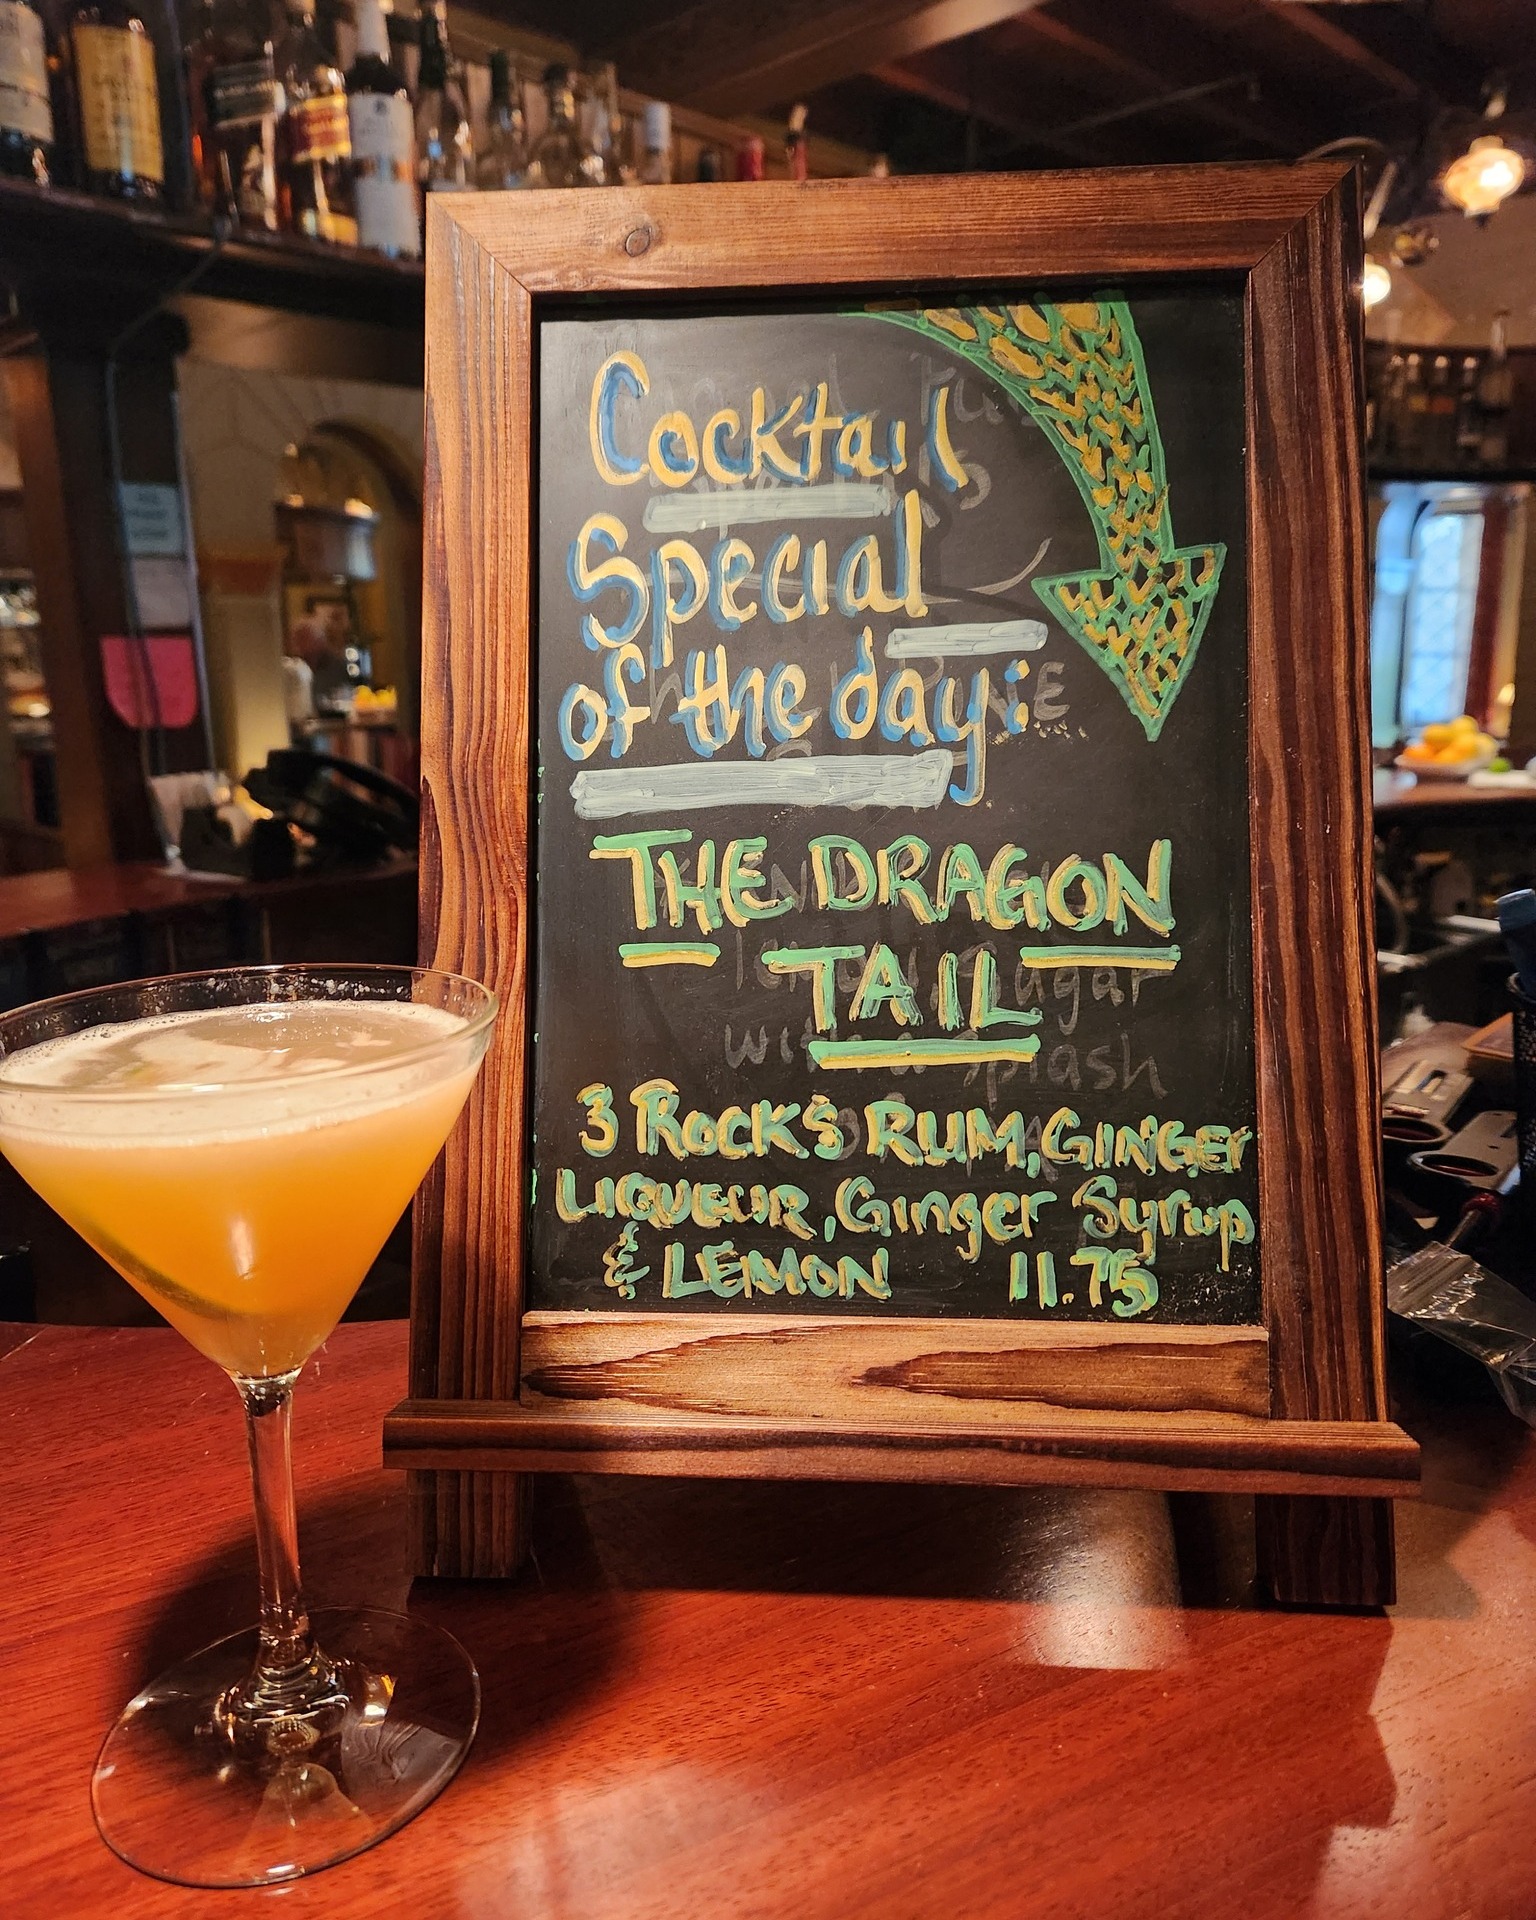 Cocktail
Special
of the day:
THE DRAGON
TAIL
3 ROCKS RUM, GINGER
LIQUEUR, Ginger Syrup
& LEMON 11.75
lemon, sugar
with a splash